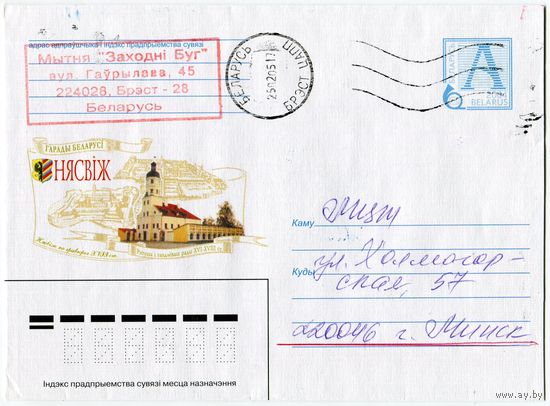 адрас адпраўшчыка і індэкс прадпрыемства сувязі
Мытня "Заходні Буг"
вул. Гаўрылава, 45
224028, Брэст - 28
Беларусь
БЕЛАРУСЬ
БРЭСТ ПАПП
250205 17
БЕЛАРУСЬ
A
BELARUS
ГАРАДЫ БЕЛАРУСІ
НЯСВІЖ
Нясвіж на гравюры XVII ст.
Ратуша і гандлёвыя рады XVI-XVIII ст.
Каму МЦЖ
ул. Холмогор-
Куды ская, 57
220046 г. Минск
Індэкс прадпрыемства сувязі месца назначэння
www.ay.by